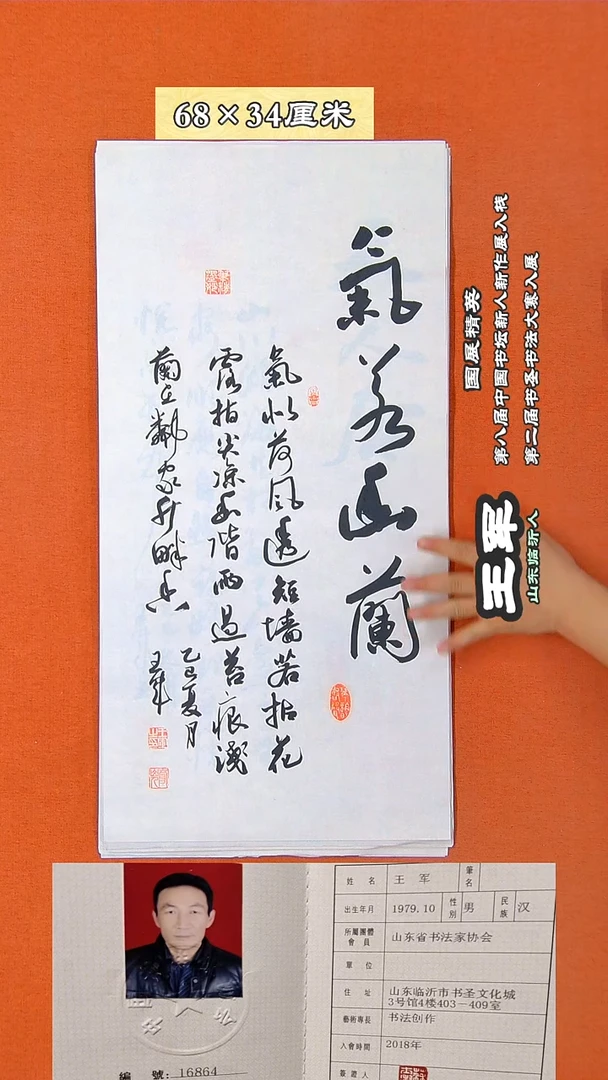 68×34厘米
氣若幽蘭
氣似荷風透短墻若拈花
露指尖凉幽階雨過苔痕淺
蘭在鄰家井畔香
乙巳夏月
王軍
国展精英
第八届中国书坛新人新作展入展
第二届书圣书法大赛入展
王军
山东临沂人
姓名 王军 筆名
出生年月 1979.10 性別 男 民族 汉
所屬團體會員 山东省书法家协会
單位
住址 山东临沂市书圣文化城3号馆4楼403—409室
藝術專長 书法创作
入會時間 2018年
簽證人
編號: 16864